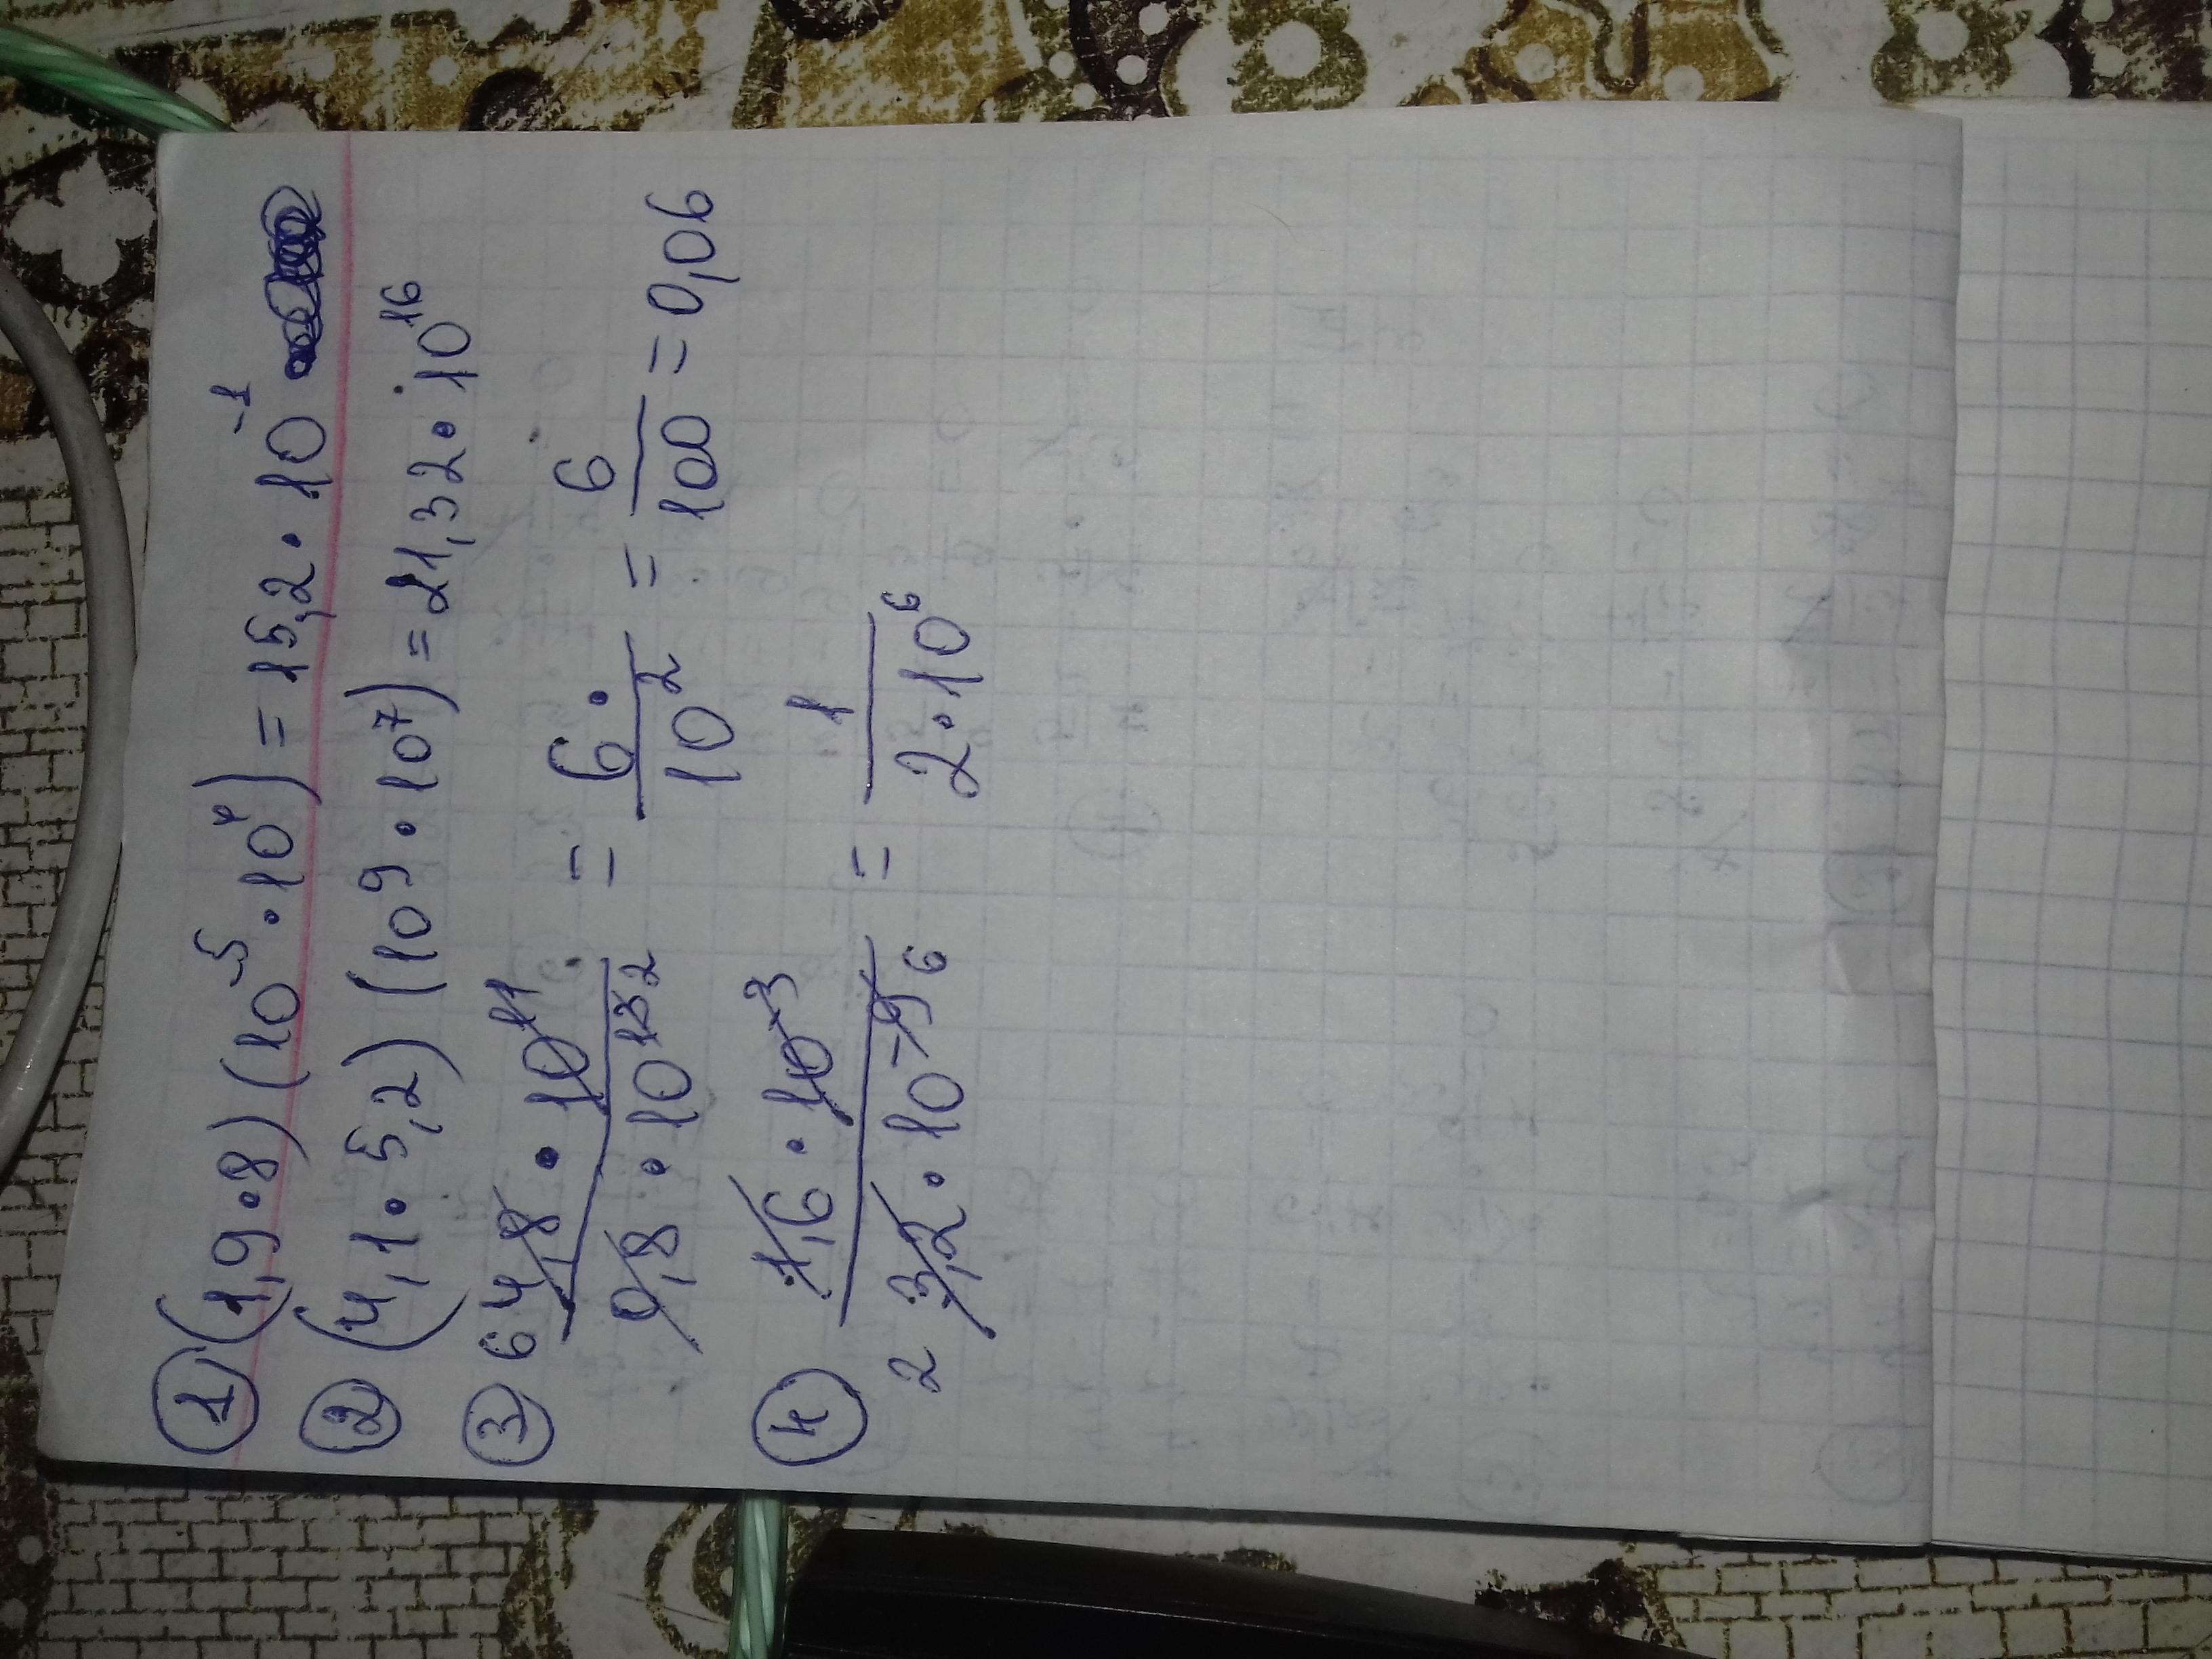 ① (1,9·8)(10⁻⁵·10⁴) = 15,2·10⁻¹
② (4,1·5,2)(10⁹·10⁷) = 21,32·10¹⁶
③ 6 4,8·10¹¹ / 0,8·10¹³ 2 = 6· / 10² = 6 / 100 = 0,06
④ 1,6·10⁻³ / 2 3,2·10⁻⁹ 6 = 1 / 2·10⁶